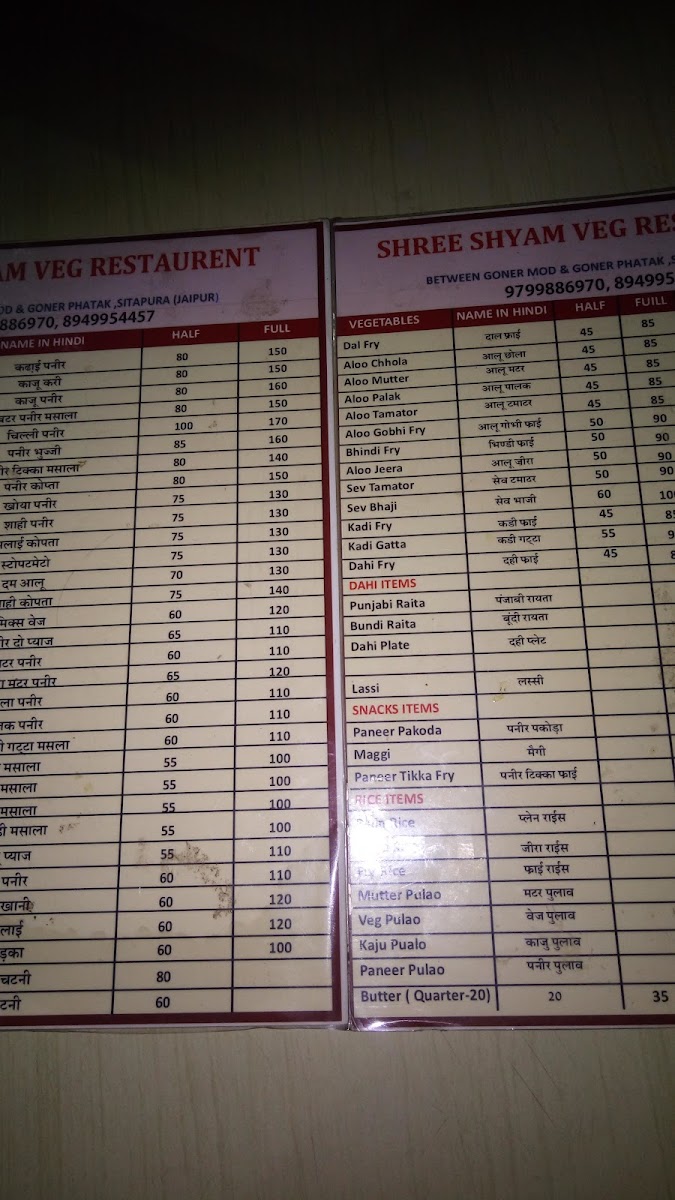 AM VEG RESTAURENT
OD & GONER PHATAK ,SITAPURA (JAIPUR)
886970, 8949954457
NAME IN HINDI HALF FULL
कढाई पनीर 80 150
काजू करी 80 150
काजू पनीर 80 160
बटर पनीर मसाला 80 150
चिल्ली पनीर 100 170
पनीर भुज्जी 85 160
टिक्का मसाला 80 140
पनीर कोप्ता 80 150
खोया पनीर 75 130
शाही पनीर 75 130
मलाई कोपता 75 130
स्टोपटमेटो 75 130
दम आलू 70 130
शाही कोपता 75 140
मिक्स वेज 60 120
दो प्याज 65 110
टर पनीर 60 110
मटर पनीर 65 120
ला पनीर 60 110
पनीर 60 110
गट्टा मसला 60 110
मसाला 55 100
मसाला 55 100
मसाला 55 100
मसाला 55 100
प्याज 55 110
पनीर 60 110
खानी 60 120
लाई 60 120
ड़का 60 100
चटनी 80
टनी 60
SHREE SHYAM VEG RES
BETWEEN GONER MOD & GONER PHATAK ,S
9799886970, 894995
VEGETABLES NAME IN HINDI HALF FUILL
Dal Fry दाल फ्राई 45 85
Aloo Chhola आलू छोला 45 85
Aloo Mutter आलू मटर 45 85
Aloo Palak आलू पालक 45 85
Aloo Tamator आलू टमाटर 45 85
Aloo Gobhi Fry आलू गोभी फाई 50 90
Bhindi Fry भिण्डी फाई 50 90
Aloo Jeera आलू जीरा 50 90
Sev Tamator सेव टमाटर 50 90
Sev Bhaji सेव भाजी 60 100
Kadi Fry कडी फाई 45 85
Kadi Gatta कडी गट्टा 55 9
Dahi Fry दही फाई 45 8
DAHI ITEMS
Punjabi Raita पंजाबी रायता
Bundi Raita बूंदी रायता
Dahi Plate दही प्लेट
Lassi लस्सी
SNACKS ITEMS
Paneer Pakoda पनीर पकोड़ा
Maggi मैगी
Paneer Tikka Fry पनीर टिक्का फाई
RICE ITEMS
Rice प्लेन राईस
जीरा राईस
Rice फाई राईस
Mutter Pulao मटर पुलाव
Veg Pulao वेज पुलाव
Kaju Pualo काजु पुलाव
Paneer Pulao पनीर पुलाव
Butter ( Quarter-20) 20 35